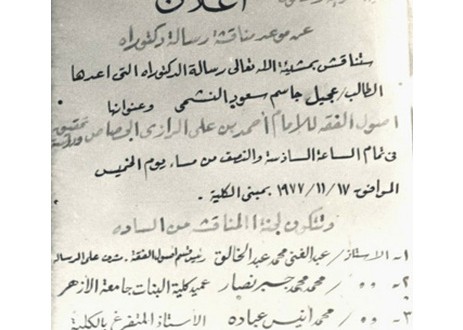 اعلان
عن موعد مناقشة رسالة دكتوراه
ستناقش بمشيئة الله تعالى رسالة الدكتوراه التى اعدها
الطالب / عجيل جاسم سعود النشمى وعنوانها
اصول الفقه للامام أحمد بن على الرازى الجصاص تحقيق ودراسة
فى تمام الساعة السادسة والنصف من مساء يوم الخميس
الموافق ١٩٧٧/١١/١٧ بمبنى الكلية .
وتتكون لجنة المناقشة من السادة
١- الاستاذ / عبد الغنى محمد عبد الخالق رئيس قسم اصول الفقه . مشرف على الرسالة
٢- ٥٥ / محمد محمد جبر نصار عميد كلية البنات جامعة الأزهر
٣- ٥٥ / محمد أنيس عباده الأستاذ المتفرغ بالكلية